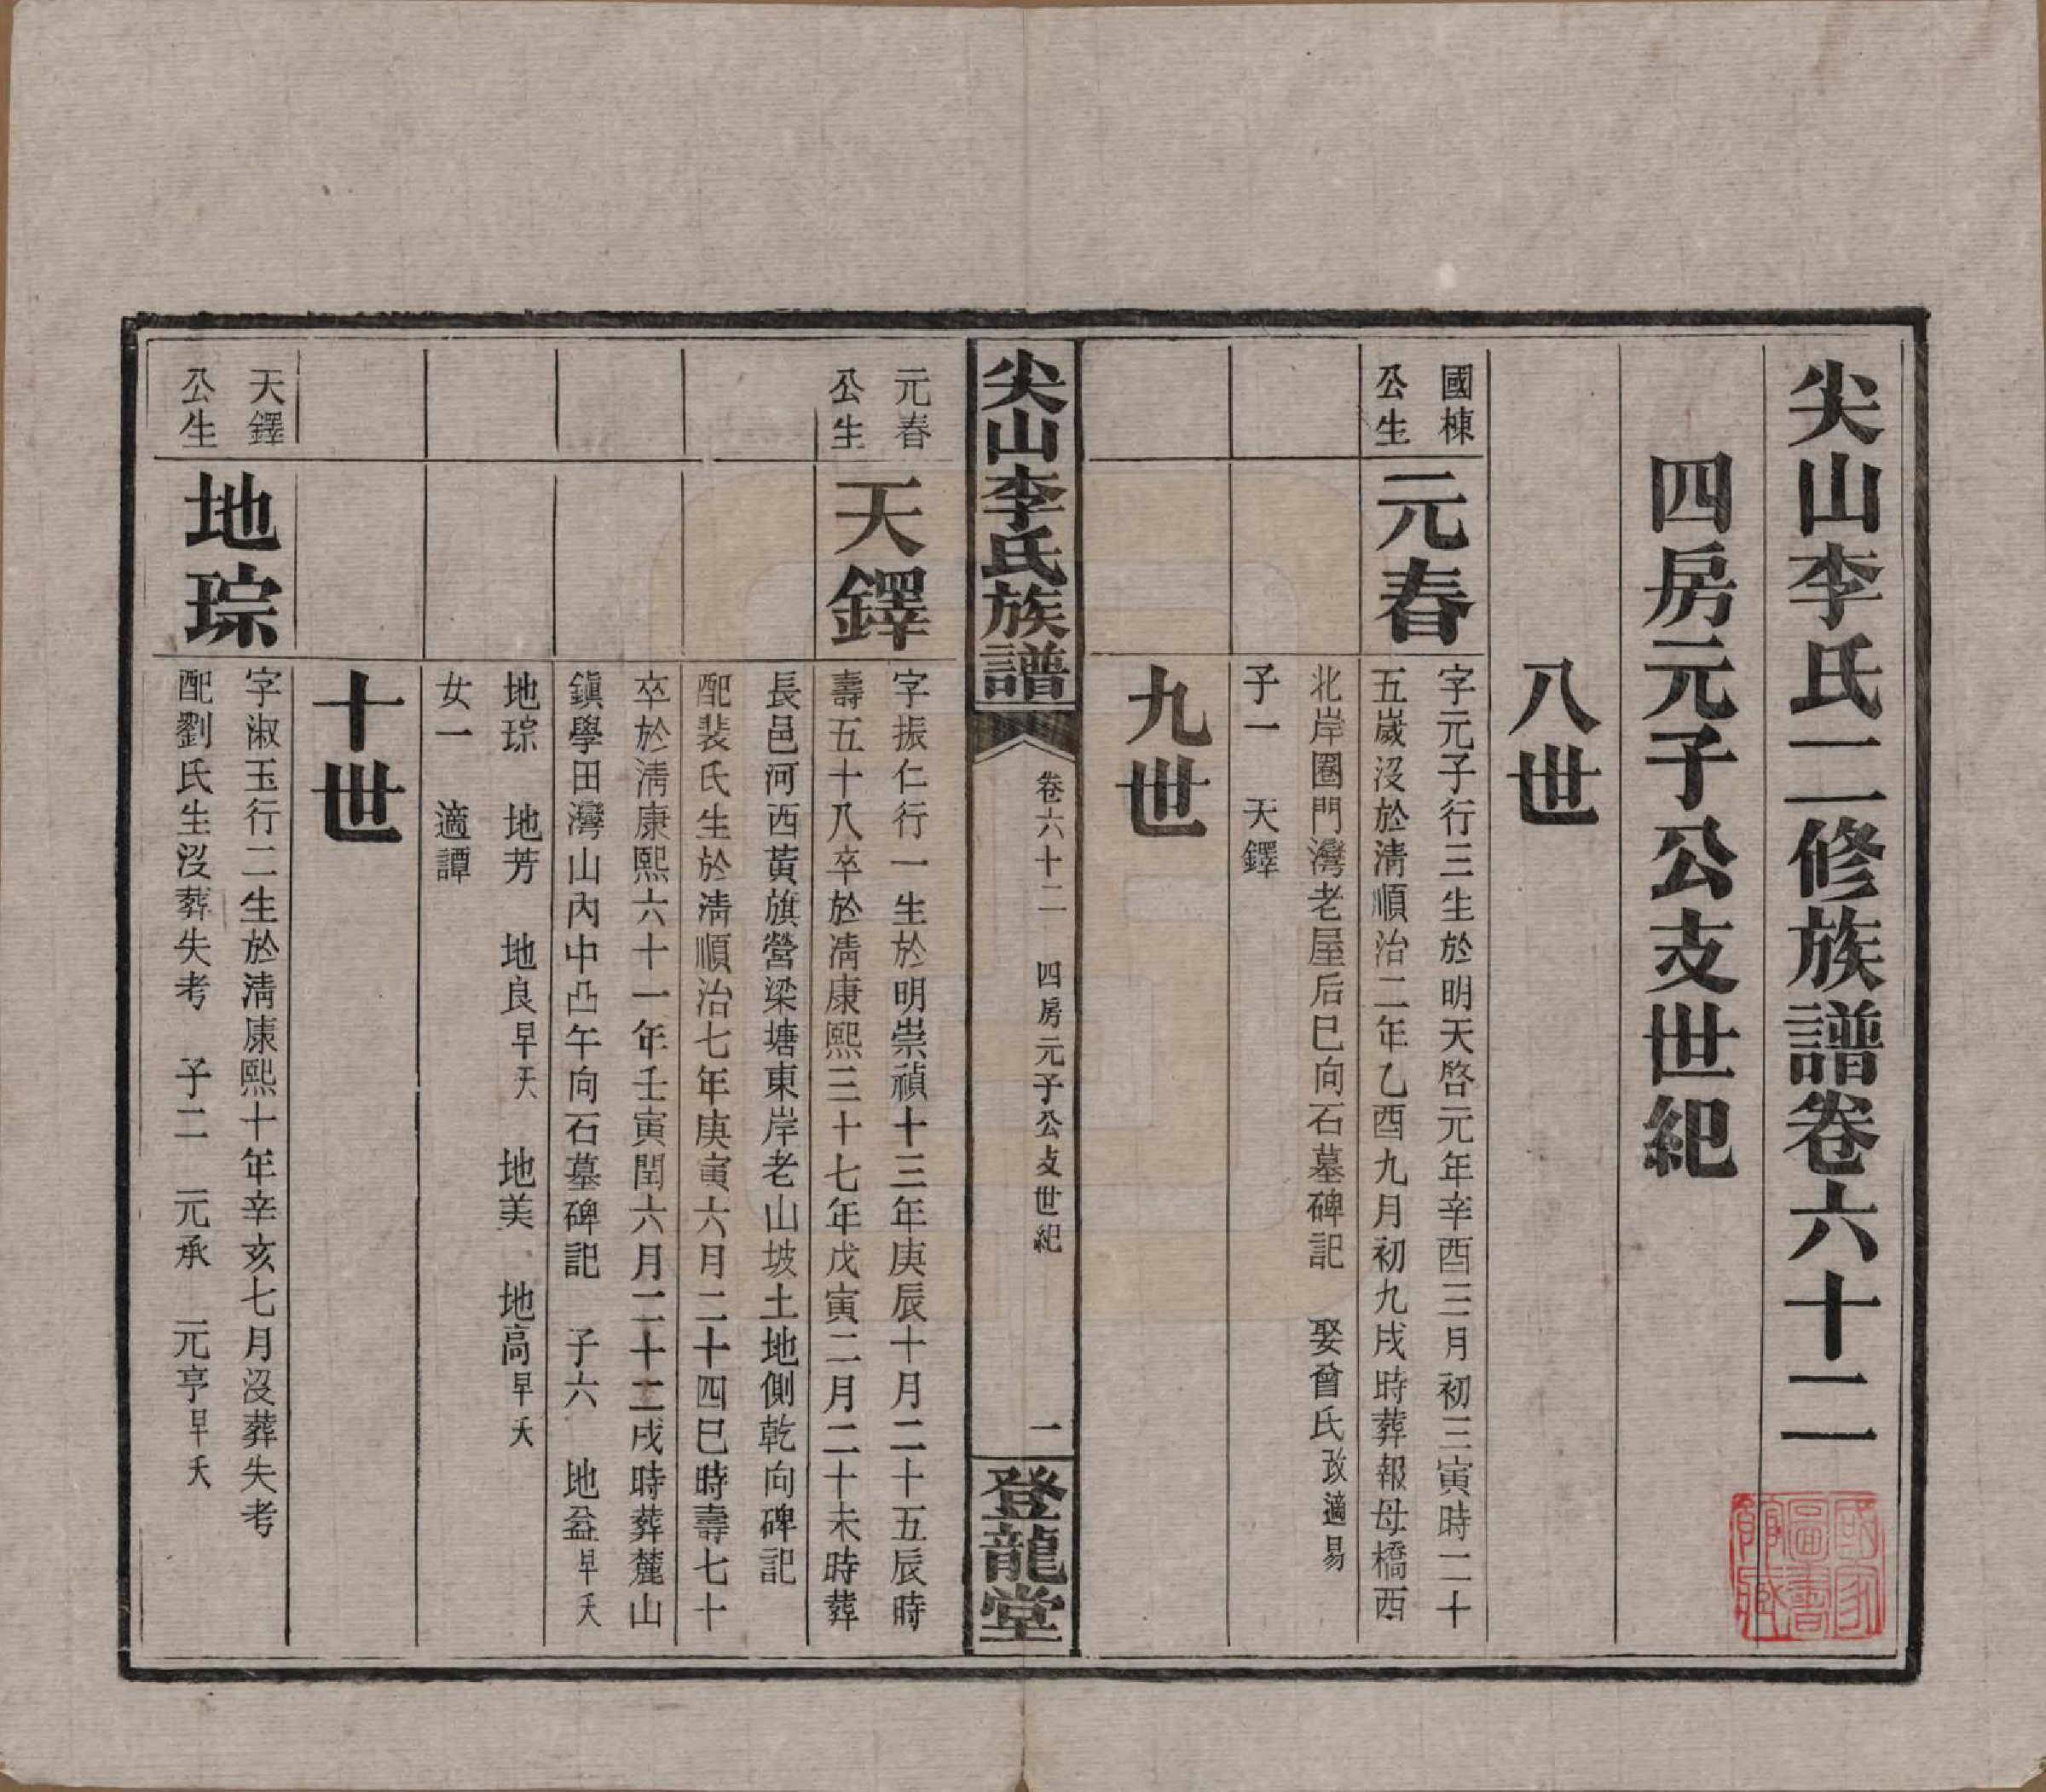 尖山李氏二修族譜卷六十二
四房元子公支世紀
八世
國棟
公生
元春
字元子行三生於明天啓元年辛酉三月初三寅時二十
五歲沒於淸順治二年乙酉九月初九戌時葬報母橋西
北岸圈門灣老屋后巳向石墓碑記 娶曾氏改適易
子一 天鐸
九世
尖山李氏族譜
卷六十二 四房元子公支世紀
一
登龍堂
元春
公生
天鐸
字振仁行一生於明崇禎十三年庚辰十月二十五辰時
壽五十八卒於淸康熙三十七年戊寅二月二十未時葬
長邑河西黃旗營梁塘東岸老山坡土地側乾向碑記
配裴氏生於淸順治七年庚寅六月二十四巳時壽七十
卒於淸康熙六十一年壬寅閏六月二十二戌時葬麓山
鎭學田灣山內中凸午向石墓碑記 子六 地益早夭
地琮 地芳 地良早夭 地美 地高早夭
女一 適譚
十世
天鐸
公生
地琮
字淑玉行二生於淸康熙十年辛亥七月沒葬失考
配劉氏生沒葬失考 子二 元承 元亨早夭
國家圖書館藏